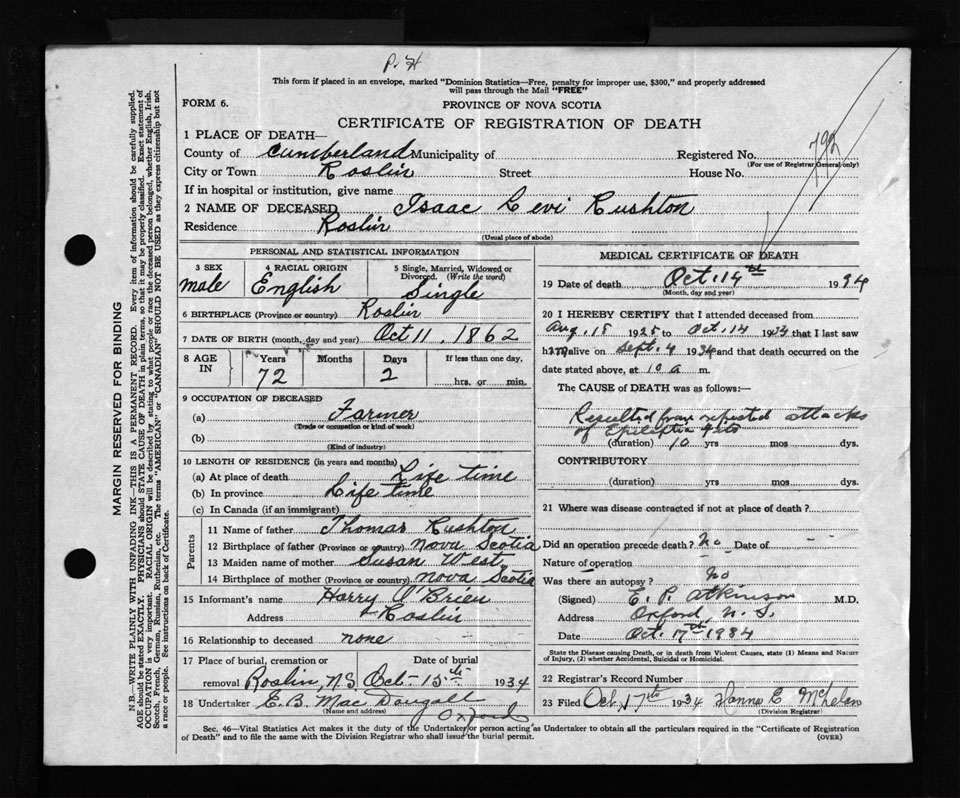 P. H
This form if placed in an envelope, marked "Dominion Statistics—Free, penalty for improper use, $300," and properly addressed
will pass through the Mail "FREE"
FORM 6.
PROVINCE OF NOVA SCOTIA
CERTIFICATE OF REGISTRATION OF DEATH
792
1 PLACE OF DEATH—
County of Cumberland Municipality of Registered No.
(For use of Registrar General only)
City or Town Roslin Street House No.
If in hospital or institution, give name
2 NAME OF DECEASED Isaac Levi Rushton
Residence Roslin
(Usual place of abode)
PERSONAL AND STATISTICAL INFORMATION
3 SEX male
4 RACIAL ORIGIN English
5 Single, Married, Widowed or
Divorced. (Write the word)
Single
6 BIRTHPLACE (Province or country) Roslin
7 DATE OF BIRTH (month, day and year) Oct 11, 1862
8 AGE IN
Years Months Days If less than one day,
72 2 hrs. or min.
9 OCCUPATION OF DECEASED
(a) Farmer
(Trade or occupation or kind of work)
(b)
(Kind of industry)
10 LENGTH OF RESIDENCE (in years and months)
(a) At place of death Life time
(b) In province Life time
(c) In Canada (if an immigrant)
Parents
11 Name of father Thomas Rushton
12 Birthplace of father (Province or country) Nova Scotia
13 Maiden name of mother Susan West
14 Birthplace of mother (Province or country) Nova Scotia
15 Informant's name Harry O'Brien
Address Roslin
16 Relationship to deceased none
17 Place of burial, cremation or Date of burial
removal Roslin, NS Oct 15th 1934
18 Undertaker E. B. Mac Dougall
(Name and address) Oxford
MEDICAL CERTIFICATE OF DEATH
19 Date of death Oct. 14th 1934
(Month, day and year)
20 I HEREBY CERTIFY that I attended deceased from
Aug. 18 1925 to Oct. 14 1934 that I last saw
him alive on Sept. 4 1934 and that death occurred on the
date stated above, at 10 a m.
The CAUSE of DEATH was as follows:—
Resulted from repeated attacks
of Epileptic fits
(duration) 10 yrs mos dys.
CONTRIBUTORY
(duration) yrs mos dys.
21 Where was disease contracted if not at place of death?
Did an operation precede death? No Date of - -
Nature of operation -
Was there an autopsy? No
(Signed) E. P. Atkinson M.D.
Address Oxford, N.S.
Date Oct. 17th 1934
State the Disease causing Death, or in death from Violent Causes, state (1) Means and Nature
of Injury, (2) whether Accidental, Suicidal or Homicidal.
22 Records Record Number
23 Filed Oct, 17th 1934
(Division Registrar)
Sec. 46—Vital Statistics Act makes it the duty of the Undertaker or person acting as Undertaker to obtain all the particulars required in the "Certificate of Registration
of Death" and to file the same with the Division Registrar who shall issue the burial permit. (OVER)
MARGIN RESERVED FOR BINDING
N.B.—WRITE PLAINLY WITH UNFADING INK—THIS IS A PERMANENT RECORD. Every item of information should be carefully supplied.
AGE should be stated EXACTLY. PHYSICIANS should STATE CAUSE OF DEATH in plain terms, so that it may be properly classified. Exact statement of
OCCUPATION is very important. RACIAL ORIGIN will be described by stating to what people or race the deceased person belonged, whether English, Irish,
Scotch, French, German, Russian, Ruthenian, etc. The terms "AMERICAN" or "CANADIAN" SHOULD NOT BE USED as they express citizenship but not
a race or people. See instructions on back of Certificate.